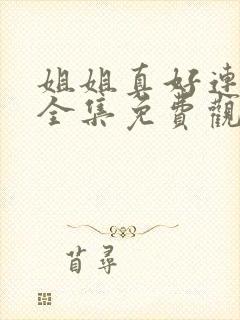 姐姐真好連
全集免費觀
苜尋